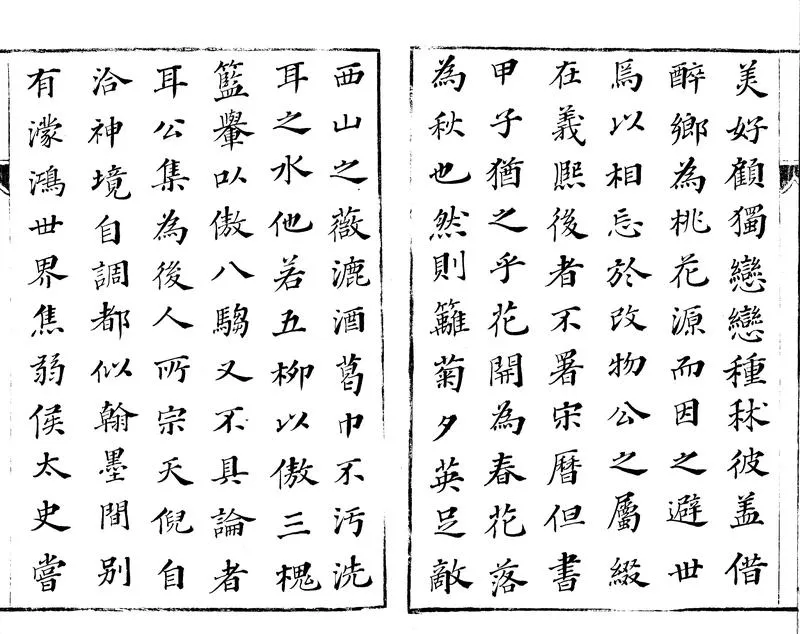 美好顧獨戀戀種秫彼盖借
醉鄉為桃花源而因之避世
焉以相忘於改物公之屬綴
在義熙後者不署宋曆但書
甲子猶之乎花開為春花落
為秋也然則籬菊夕英足敵
西山之薇漉酒葛巾不污洗
耳之水他若五柳以傲三槐
籃轝以傲八騶又不具論者
耳公集為後人所宗天倪自
洽神境自調都似翰墨間别
有濛鴻世界焦弱侯太史嘗